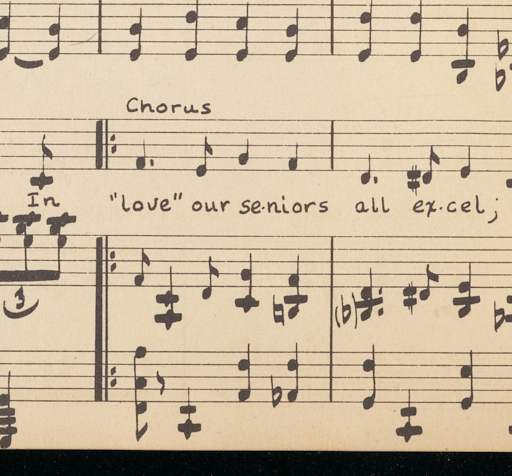 Chorus
In "love" our se·niors all ex·cel;
3